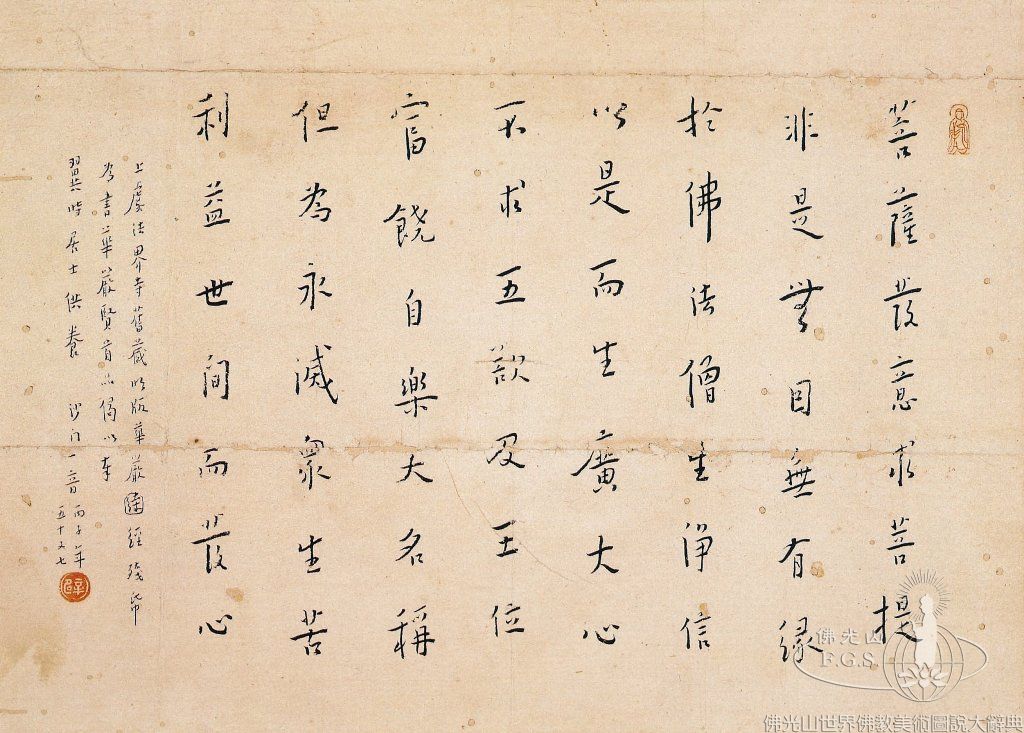 菩薩發意求菩提
非是無因無有緣
於佛法僧生淨信
以是而生廣大心
不求五欲及王位
富饒自樂大名稱
但為永滅衆生苦
利益世間而發心
上虞法界寺舊藏明版華嚴
經殘帋
為書華嚴賢首品偈以奉
居士供養
沙門一音
丙子年
五十又七
佛光山
F.G.S.
佛光山世界佛教美術圖說大辭典